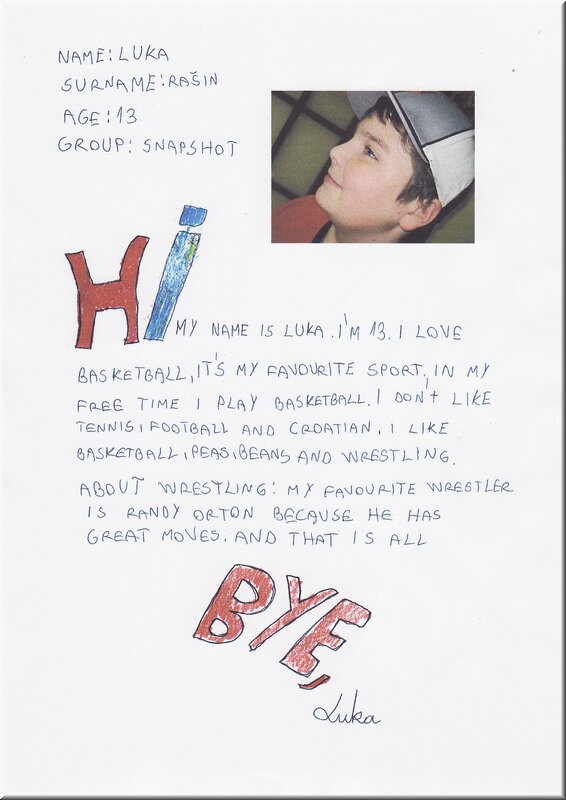 NAME: LUKA
SURNAME: RAŠIN
AGE: 13
GROUP: SNAPSHOT
HI
MY NAME IS LUKA. I'M 13. I LOVE
BASKETBALL, IT'S MY FAVOURITE SPORT. IN MY
FREE TIME I PLAY BASKETBALL. I DON'T LIKE
TENNIS, FOOTBALL AND CROATIAN. I LIKE
BASKETBALL, PEAS, BEANS AND WRESTLING.
ABOUT WRESTLING: MY FAVOURITE WRESTLER
IS RANDY ORTON BECAUSE HE HAS
GREAT MOVES. AND THAT IS ALL
BYE,
Luka